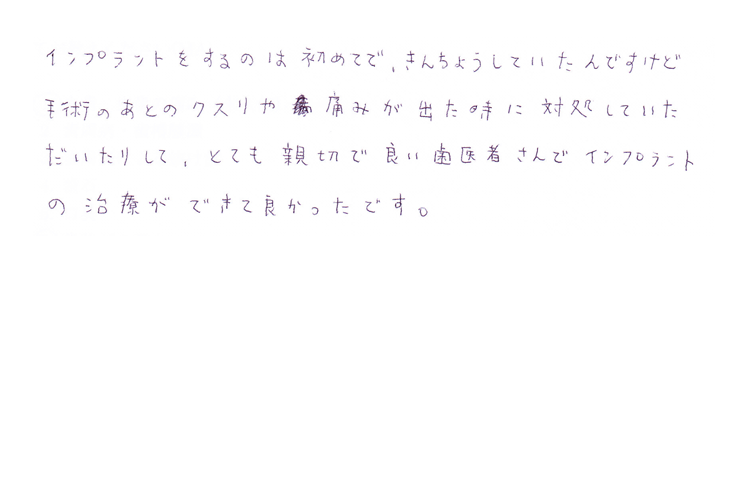 インプラントをするのは初めてで、きんちょうしていたんですけど
手術のあとのクスリや痛みが出た時に対処していた
だいたりして、とても親切で良い歯医者さんでインプラント
の治療ができて良かったです。